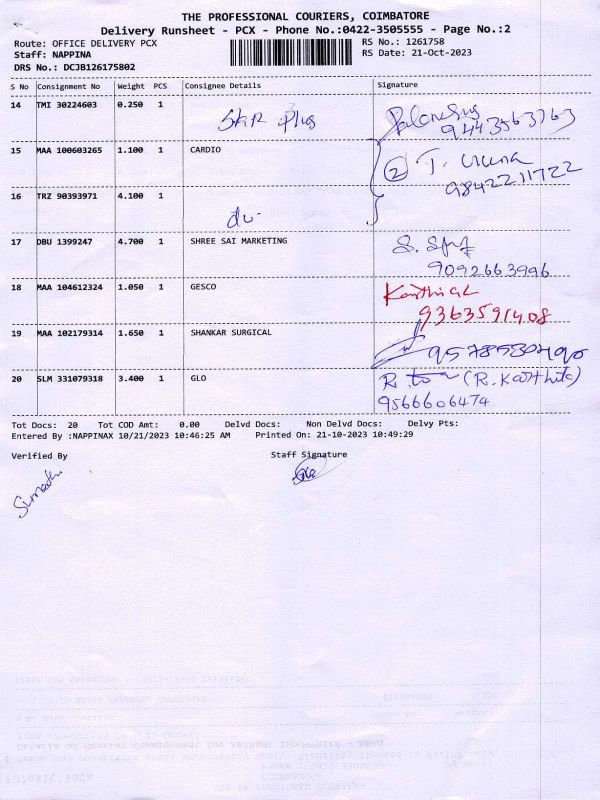 THE PROFESSIONAL COURIERS, COIMBATORE
Delivery Runsheet - PCX - Phone No.:0422-3505555 - Page No.:2
Route: OFFICE DELIVERY PCX RS No.: 1261758
Staff: NAPPINA RS Date: 21-Oct-2023
DRS No.: DCJB126175802
S No Consignment No Weight PCS Consignee Details Signature
14 TMI 30224603 0.250 1 Star Plus
9443563763
15 MAA 100603265 1.100 1 CARDIO 2 T.
9842211722
16 TRZ 90393971 4.100 1 du-
17 DBU 1399247 4.700 1 SHREE SAI MARKETING S.
9092663996
18 MAA 104612324 1.050 1 GESCO
9363591408
19 MAA 102179314 1.650 1 SHANKAR SURGICAL
20 SLM 331079318 3.400 1 GLO R. (R. Karthik)
9566606474
Tot Docs: 20 Tot COD Amt: 0.00 Delvd Docs: Non Delvd Docs: Delvy Pts:
Entered By :NAPPINAX 10/21/2023 10:46:25 AM Printed On: 21-10-2023 10:49:29
Verified By Staff Signature